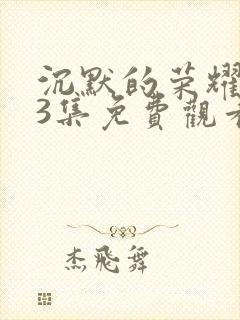 沉默的荣耀
3集免費觀看
杰飛舞